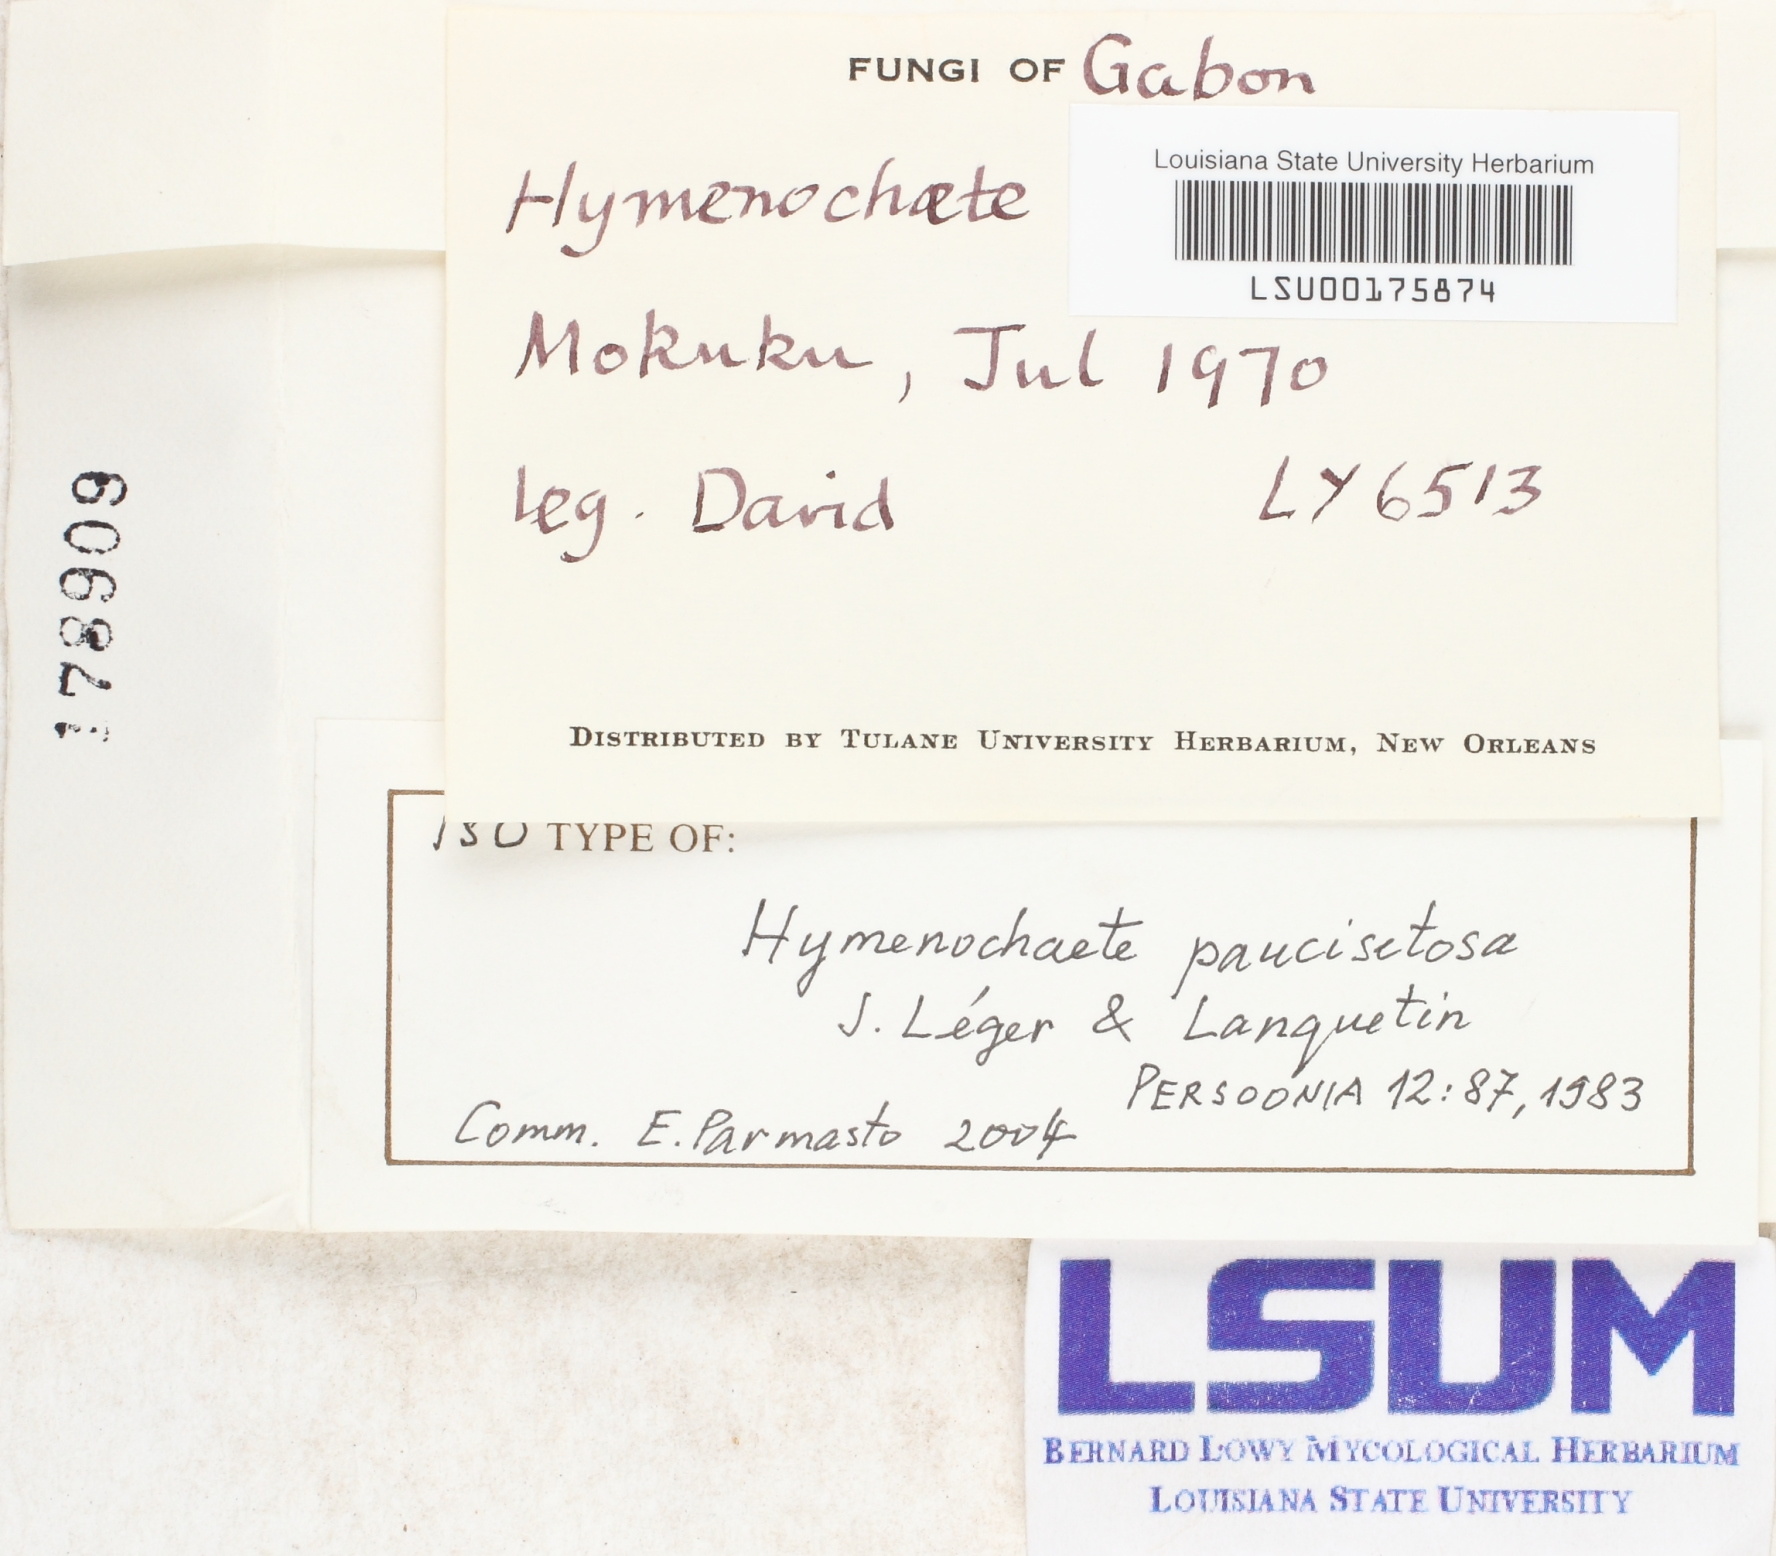 FUNGI OF Gabon
Louisiana State University Herbarium
LSU00175874
Hymenochæte
Mokuku, Jul 1970
leg. David LY 6513
DISTRIBUTED BY TULANE UNIVERSITY HERBARIUM, NEW ORLEANS
178909
ISO TYPE OF:
Hymenochaete paucisetosa
J. Léger & Lanquetin
PERSOONIA 12:87, 1983
Comm. E. Parmasto 2004
LSUM
BERNARD LOWY MYCOLOGICAL HERBARIUM
LOUISIANA STATE UNIVERSITY